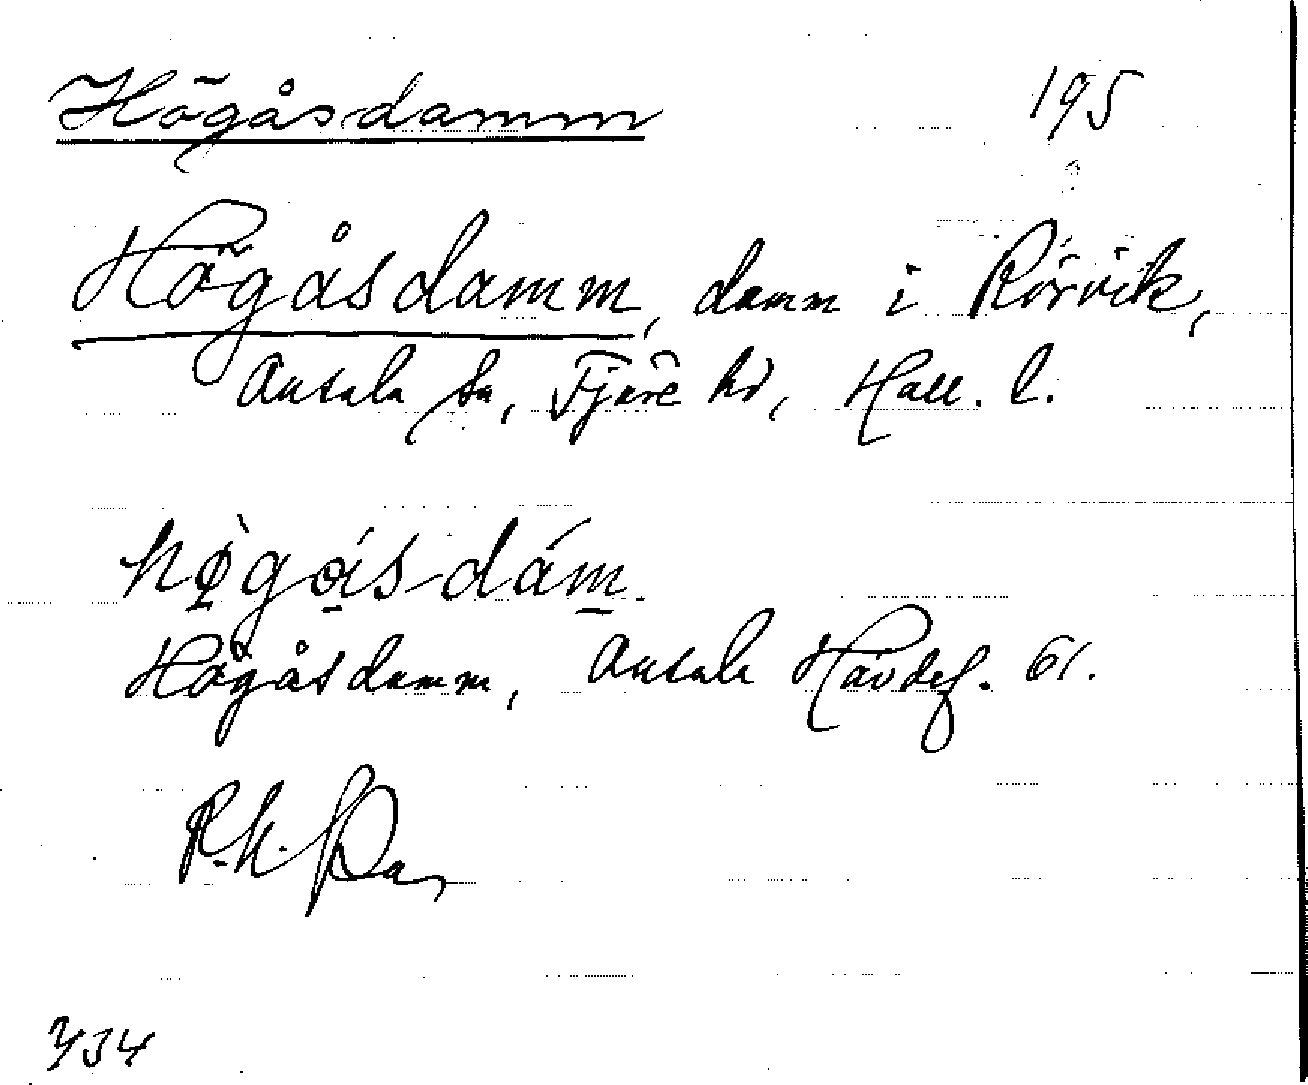 Högåsdamm 195
Högåsdamm, damm i Rörvik,
Onsala sn, Fjäre hd, Hall. l.
hø̀gåsdám.
Högåsdamm, Onsala Hävdef. 61.
734